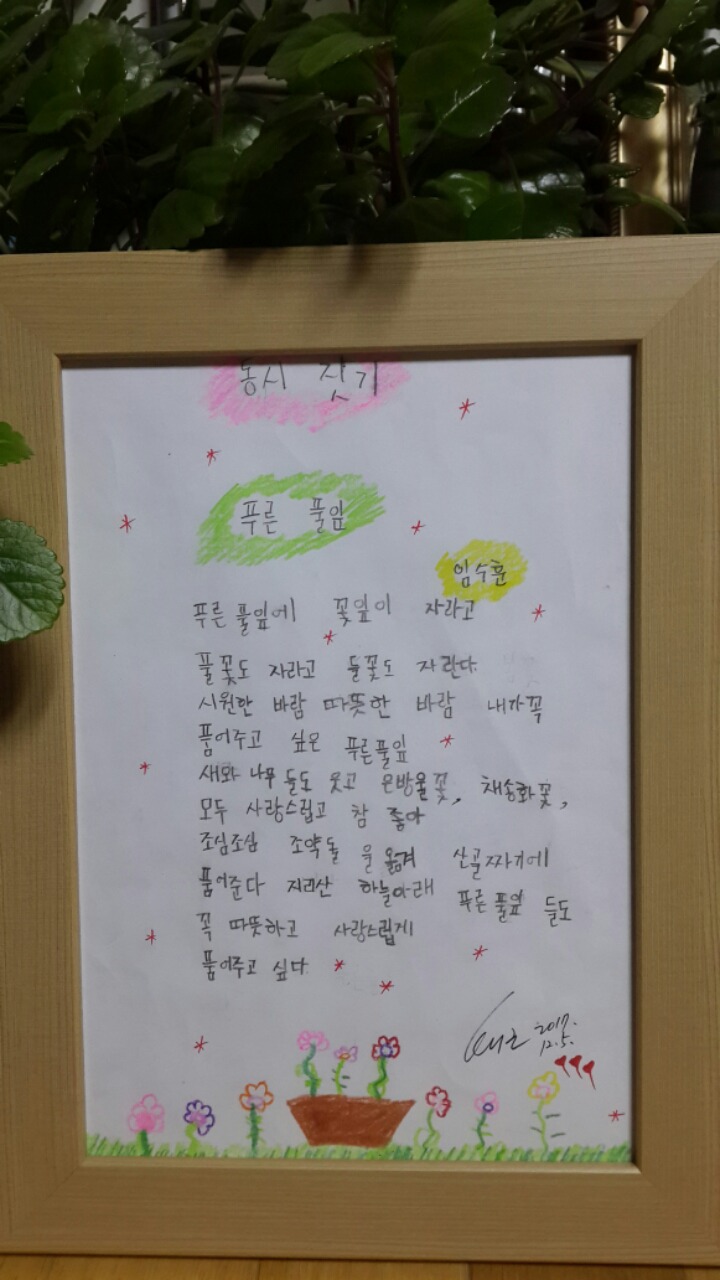 동시 짓기
푸른 풀잎
임수훈
푸른 풀잎에 꽃잎이 자라고
풀꽃도 자라고 들꽃도 자란다
시원한 바람 따뜻한 바람 내가 꼭
품어주고 싶은 푸른풀잎
새와 나무들도 웃고 은방울꽃, 채송화꽃,
모두 사랑스럽고 참 좋아
조심조심 조약돌을 옮겨 산골짜기에
품어준다 지리산 하늘아래 푸른풀잎 들도
꼭 따뜻하고 사랑스럽게
품어주고 싶다
2017.
12.5.